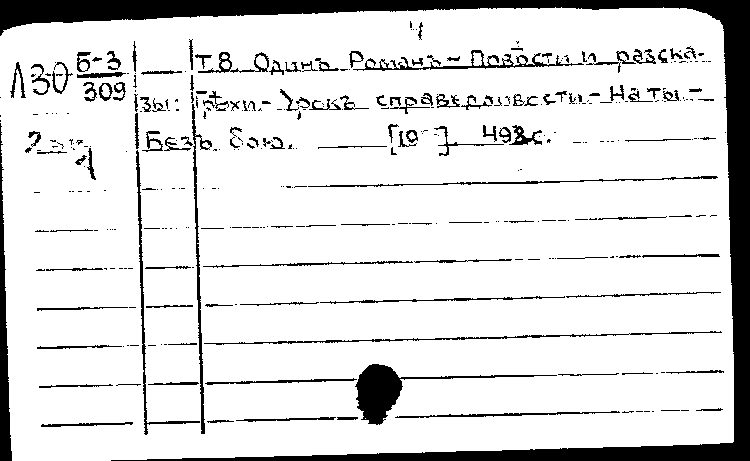 4
Л30 Б-3/309 Т.8. Одинъ. Романъ – Повѣсти и разска-
зы: Грѣхи. – Урокъ справедливости – На ты –
2 эк. Безъ бою. [19 ]. 492 с.